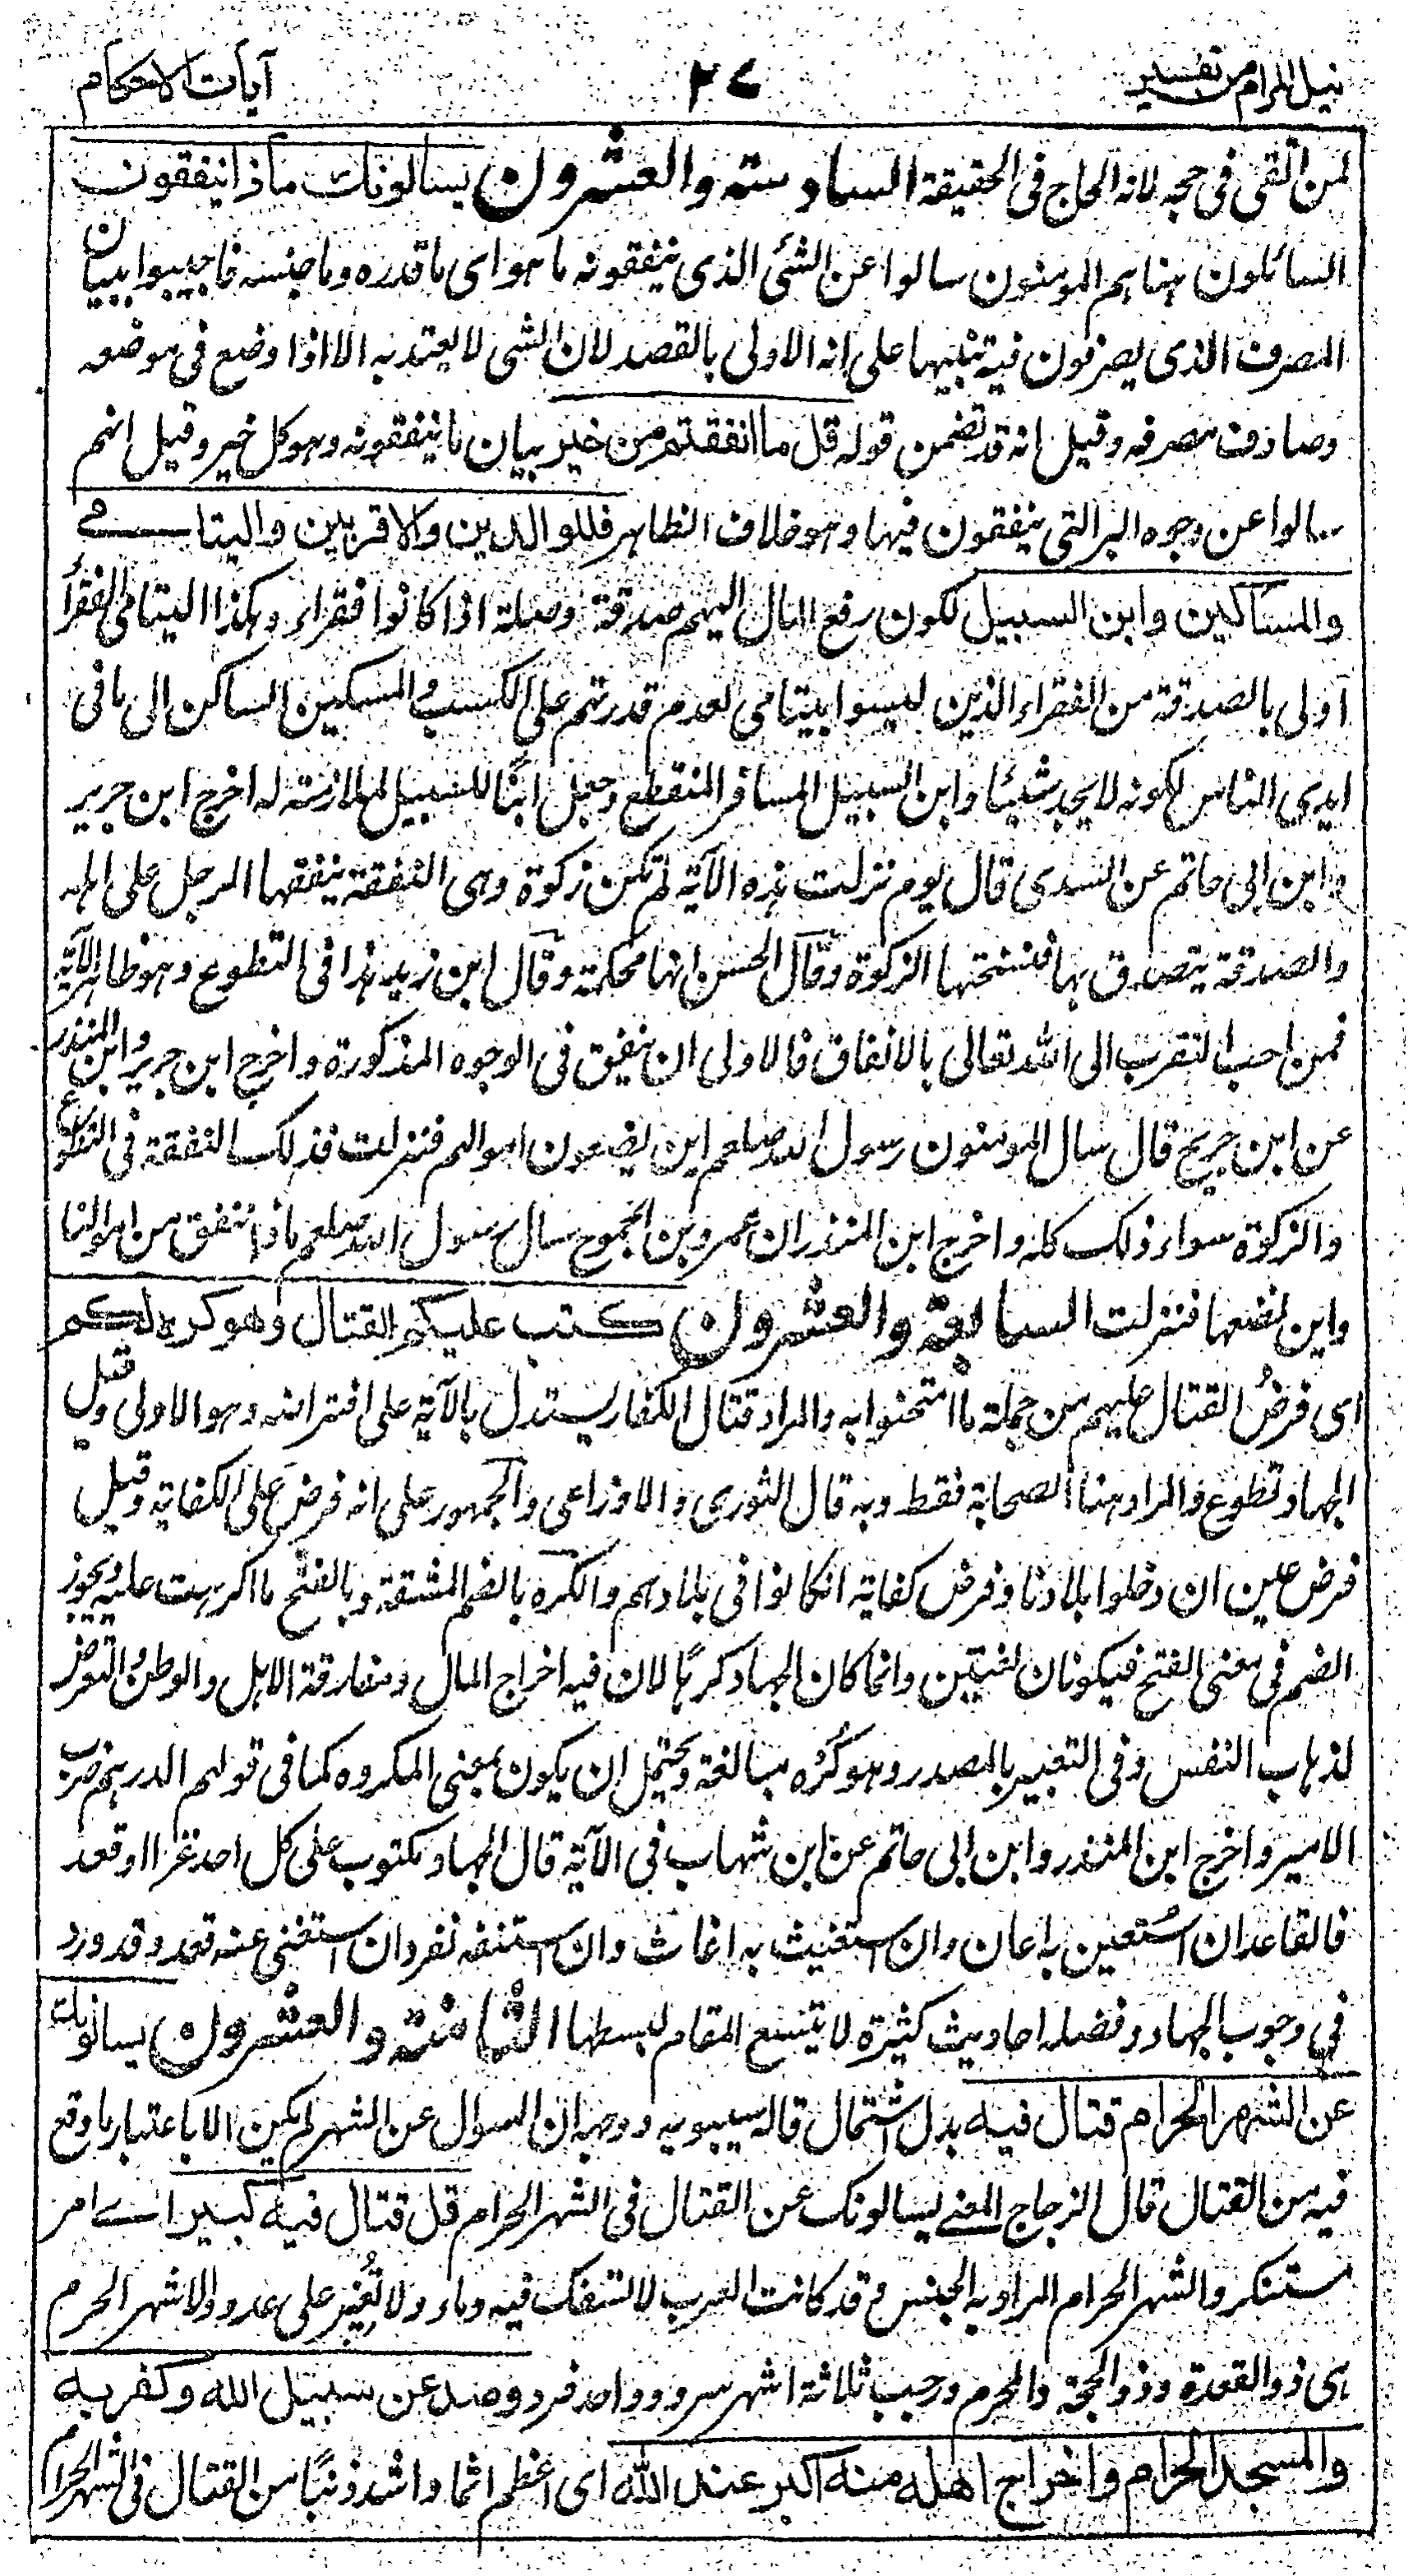 نيل المرام من تفسير ٢٧ آيات الاحكام
لمن اتقى فى حجه لانه الحاج فى الحقيقة السادسة والعشرون يسألونك ماذا ينفقون
السائلون ههنا هم المومنون سالوا عن الشئ الذى ينفقونه ما هو اى ما قدره وما جنسه فاجيبوا ببيان
المصرف الذى يصرفون فيه تنبيها على انه الاولى بالقصد لان الشى لا يعتد به الا اذا وضع فى موضعه
وصادف مصرفه وقيل انه قد تضمن قوله قل ما انفقتم من خير بيان ما ينفقونه وهو كل خير وقيل انهم
سالوا عن وجوه البر التى ينفقون فيها وهو خلاف الظاهر فللوالدين والاقربين واليتامى
والمساكين وابن السبيل لكون رفع المال اليهم صدقة وصلة اذا كانوا فقراء وهكذا اليتامى الفقراء
اولى بالصدقة من الفقراء الذين ليسوا بيتامى لعدم قدرتهم على الكسب والمسكين الساكن الى ما فى
ايدى الناس لكونه لا يجد شيئا وابن السبيل المسافر المنقطع وجعل ابنًا للسبيل لملازمته له اخرج ابن جرير
وابن ابى حاتم عن السدى قال يوم نزلت هذه الآية لم تكن زكوة وهى النفقة ينفقها الرجل على اهله
والصدقة يتصدق بها فنسختها الزكوة وقال الحسن انها محكمة وقال ابن زيد هذا فى التطوع وهو ظاهر الآية
فمن احب التقرب الى الله تعالى بالانفاق فالاولى ان ينفق فى الوجوه المذكورة واخرج ابن جرير وابن المنذر
عن ابن جريج قال سال المومنون رسول الله صلعم اين يضعون اموالهم فنزلت فذلك النفقة فى التطوع
والزكوة سواء ذلك كله واخرج ابن المنذر ان عمرو بن الجموح سال رسول الله صلعم ماذا ننفق من اموالنا
واين نضعها فنزلت السابعة والعشرون كتب عليكم القتال وهو كره لكم
اى فرضُ القتال عليهم من جملة ما امتحنوا به والمراد قتال الكفار يستدل بالآية على افتراضه وهو الاولى وقيل
الجهاد تطوع والمراد هنا الصحابة فقط وبه قال الثورى والاوزاعى والجمهور على انه فرض على الكفاية وقيل
فرض عين ان دخلوا بلادنا وفرض كفاية انكانوا فى بلادهم والكره بالضم المشقة وبالفتح ما اكرهت عليه ويجوز
الضم فى معنى الفتح فيكونان لغتين وانما كان الجهاد كرهًا لان فيه اخراج المال ومفارقة الاهل والوطن والتعرض
لذهاب النفس وفى التعبير بالمصدر وهو كُرْه مبالغة ويحتمل ان يكون بمعنى المكروه كما فى قولهم الدرهم ضرب
الامير واخرج ابن المنذر وابن ابى حاتم عن ابن شهاب فى الآية قال الجهاد مكتوب على كل احد غزا او قعد
فالقاعد ان استُعين به اعان وان استغيث به اغاث وان استنفر نفر وان استغنى عنه قعد وقد ورد
فى وجوب الجهاد وفضله احاديث كثيرة لا يتسع المقام لبسطها الثامنة والعشرون يسالونك
عن الشهر الحرام قتال فيه بدل اشتمال قاله سيبويه ووجهه ان السوال عن الشهر لم يكن الا باعتبار ما وقع
فيه من القتال قال الزجاج المعنى يسالونك عن القتال فى الشهر الحرام قل قتال فيه كبير اے امر
مستنكر والشهر الحرام المراد به الجنس وقد كانت العرب لا تسفك فيه دماء ولا تُغِير على عدو والاشهر الحرم
هى ذو القعدة وذو الحجة والمحرم ورجب ثلاثة اشهر سرد وواحد فرد وصد عن سبيل الله وكفر به
والمسجد الحرام واخراج اهله منه اكبر عند الله اى اعظم اثما واشد ذنبًا من القتال فى الشهر الحرام